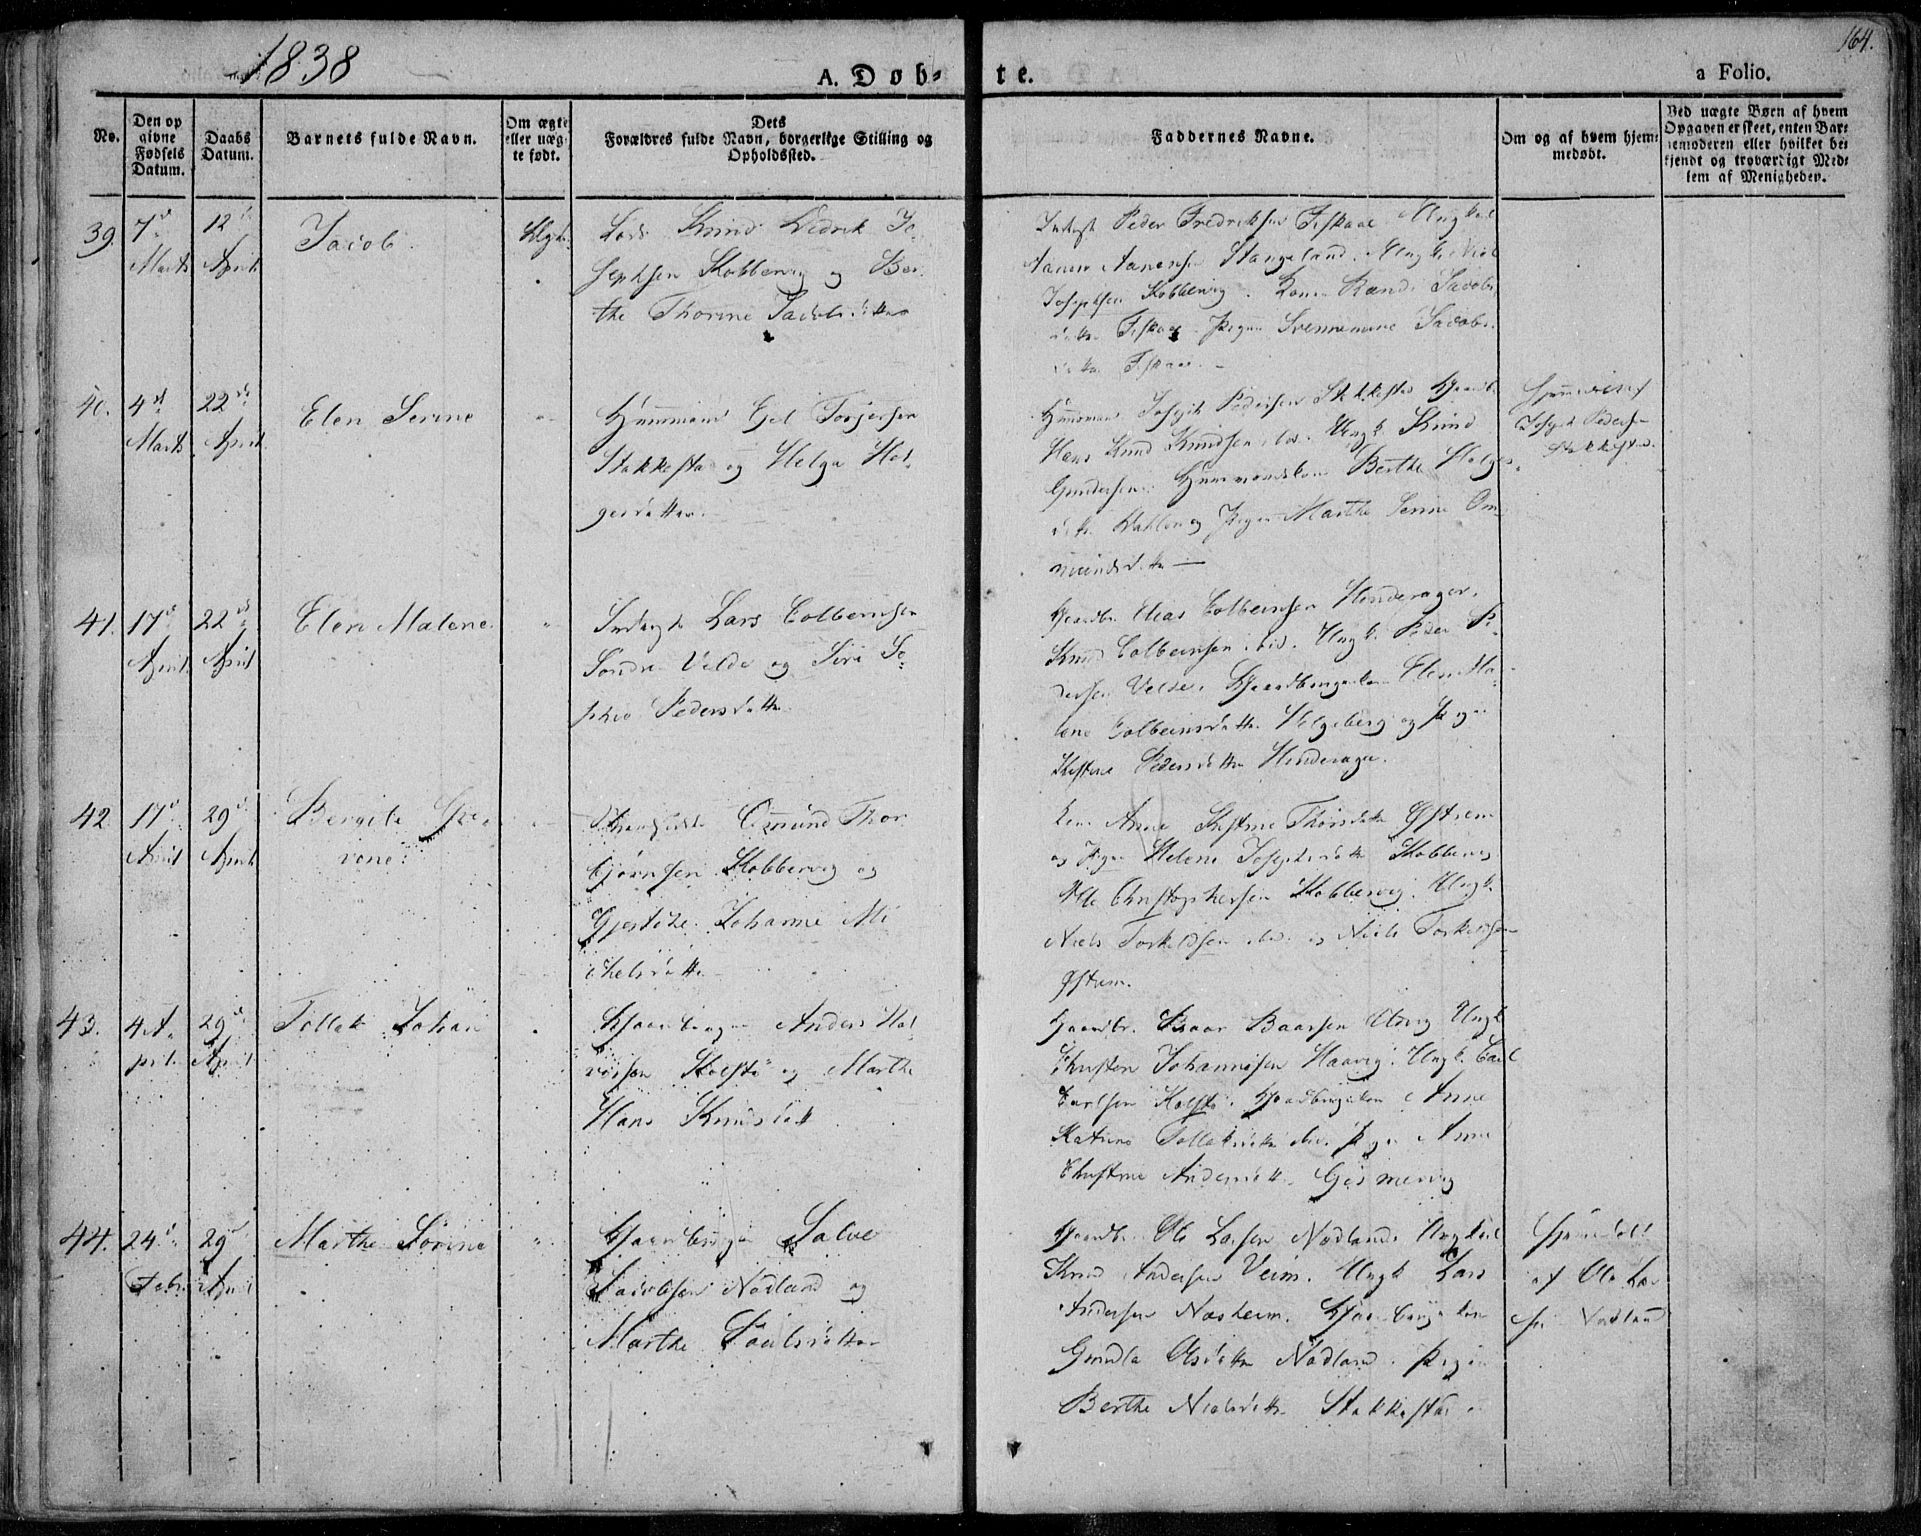 1838
164.
A. Døb-
te.
a Folio.
No.
Den op
givne
Fødsels
Datum.
Daabs
Datum.
Barnets fulde Navn.
Om ægte
eller uæg-
te født.
Dets
Forældres fulde Navn, borgerlige Stilling og
Opholdssted.
Faddernes Navne.
Om og af hvem hjem-
medøbt.
Ved uægte Børn af hvem
Opgaven er skeet, enten Bar-
nemoderen eller hvilket be-
kjendt og troværdigt Med-
lem af Menigheden.
39.
7de
Marts
12te
April
Jacob
Ægte
Knud Didrik Jo-
sephsen Kobbervig og Ber-
the Thorine Jacobsdatter
Peder Fredriksen Fiskaae Ungkarl
Aanen Aanensen Stangeland. Ungk. Niel
Josephsen Kobbervig. Kone Rand. Jacobs
datter Fiskaae Pigen Svennemine Jacobs-
datter Fiskaae.
40.
4de
Marts
22de
April
Elen Serine
Huusmand Gjel Torjersen
Stakkesta og Helga Hol-
gersdatter
Huusmand Joseph Pedersen Stakkesta Gaardbr.
Hans Knud Knudsen ibd. Ungk. Knud
Gundersen. Huusmandskone Berthe Holgers-
datter Dahlen og Pigen Marthe Serine Om-
mundsdatter
Hjemmedøbt af
Joseph Peders-
Stakkesta
41.
17de
April
22de
April
Elen Malene
Inderst Lars Colbeinsen
Søndre Velde og Siri Jo-
sepha Pedersdatter
Gaardbr. Elias Colbeinsen Hinderager.
Knud Colbeinsen ibid. Ungk. Peder Pe-
dersen Velde. Gaardbrugerkone Elen Ma-
lene Colbeinsdatter Helgeberg og Pigen
Kistine Pedersdatter Hinderager.
42.
17de
April
29de
April
Bergite Se-
rine
Strandsidder Omund Thor
bjørnsen Kobbervig og
Gjertrude Johanne Mi
chelsdatter
Kone Anne Kistine Thorsdatter Østrem
og Pigen Helene Josephsdatter Kobbervig
Ole Christophersen Kobbervig. Ungk.
Niels Torkeldsen ibd. og Niels Torkeldsen
Østrem.
43.
4 A-
pril
29de
April
Tollak Johan
Gaardbruger Anders Hal-
vorsen Kolstø og Marthe
Hans Knudsdatter
Gaardbr. Baar Baarsen Utvig Ungk.
Christen Johannesen Haavig. Ungk. Carl
Carlsen Kolstø. Gaardbrugerkone Anne
Katrine Tollaksdatter ibd. Pigen Anne
Christine Andersdatter Gismervig
44.
24de
Febr.
29de
April
Marthe Serine
Gaardbruger Salve
Jacobsen Nodland og
Marthe Paulsdatter
Gaardbr. Ole Larsen Nodland. Ungkarl
Knud Andersen Veim. Ungk. Lars
Andersen Norheim. Gaardbrugerkone
Gunila Olsdatter Nodland. Pigen
Berthe Nielsdatter Stakkesta.
Hjemmedøbt
af Ole Lar
sen Nodland